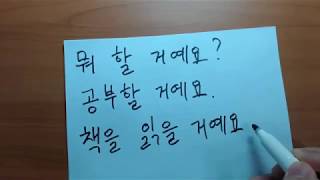 뭐 할 거예요?
공부할 거예요.
책을 읽을 거예요.